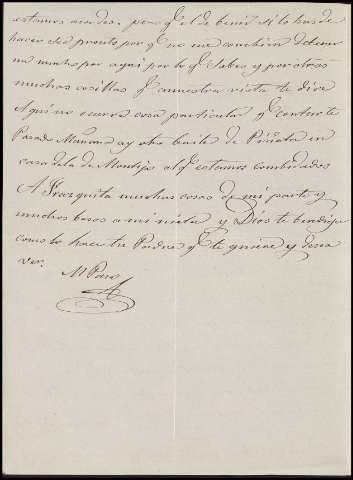 estamos asados. pero qᵉ el de benir si lo has de
hacer sea pronto por qᵉ no me combiene detener
me mucho por aqui por lo qᵉ sabes y por otras
muchas cosillas qᵉ a nuestra vista te dire
Aqui no ocurre cosa particular qᵉ contarte
Pasado Mañana ay otro baile de Piñata en
casa de la de Montijo al qᵉ estamos combidados
A Frasquita muchas cosas de mi parte y
muchos besos a mi nieta y Dios te bendiga
como lo hace tu Padre qᵉ te quiere y desea
ver.
M Paro